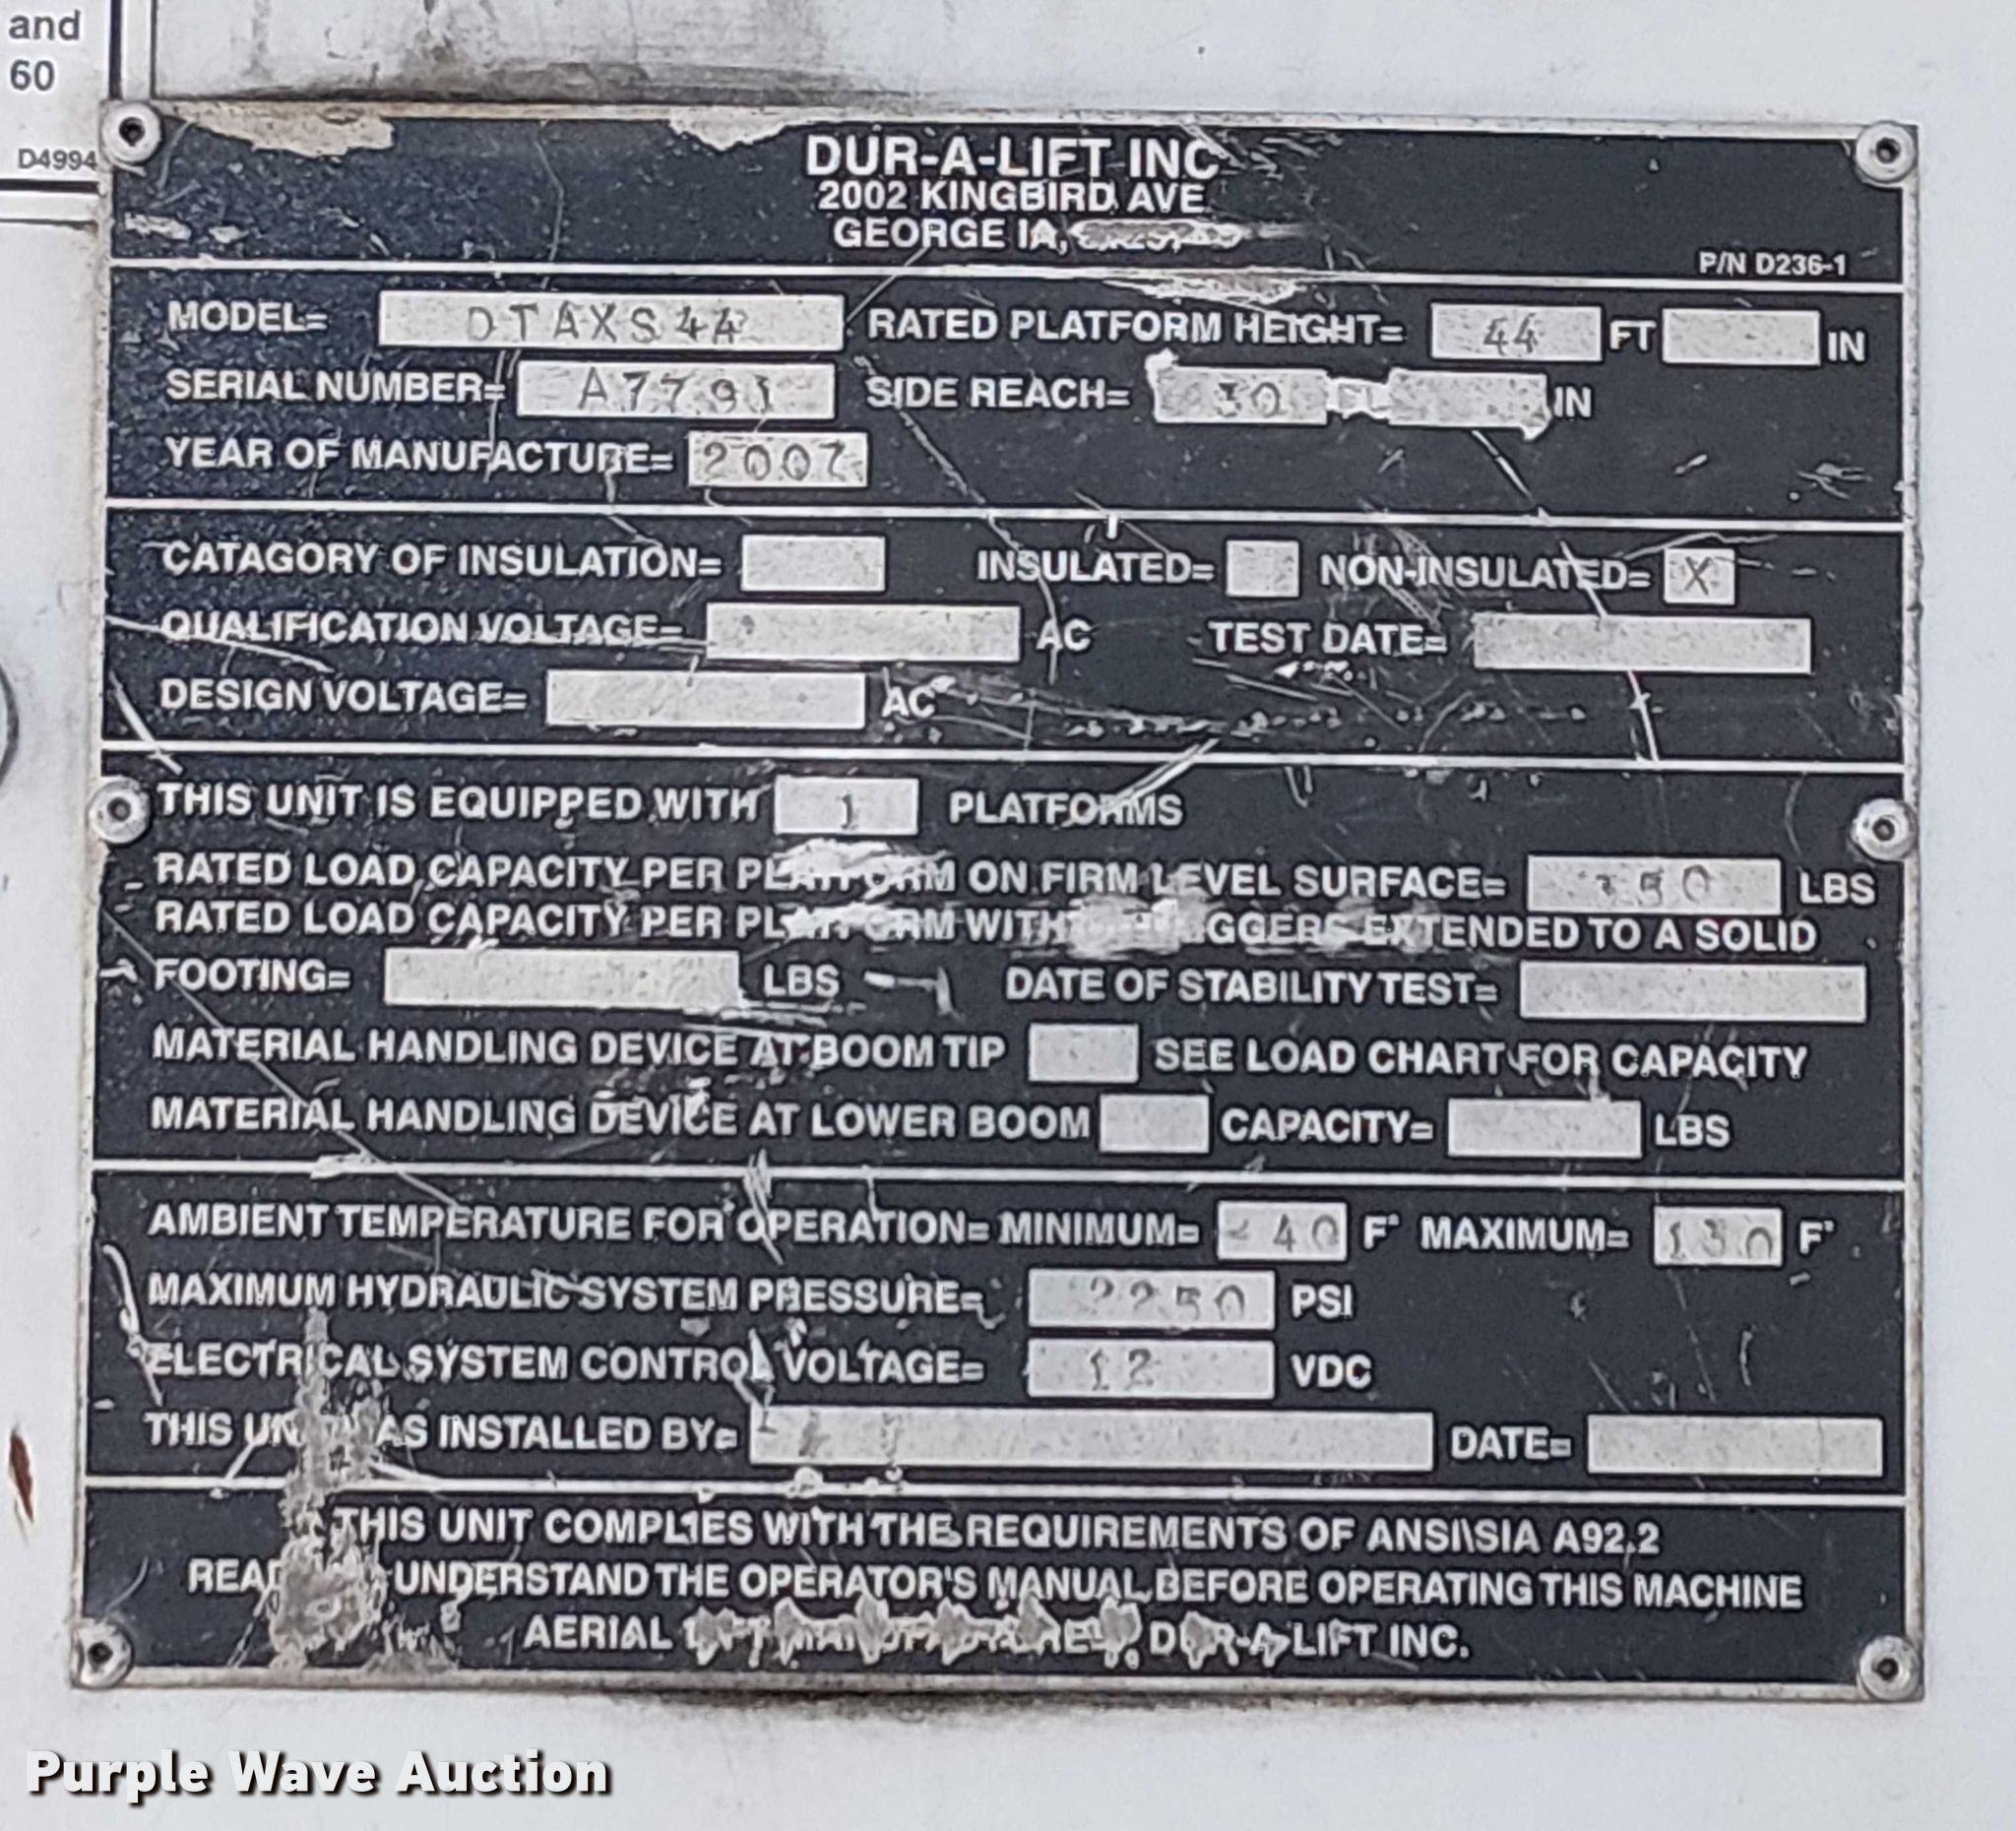 and
60
D4994
DUR-A-LIFT INC
2002 KINGBIRD AVE
GEORGE IA,
P/N D236-1
MODEL= DTAXS44 RATED PLATFORM HEIGHT= 44 FT IN
SERIAL NUMBER= A7791 SIDE REACH= 30 IN
YEAR OF MANUFACTURE= 2007
CATAGORY OF INSULATION= INSULATED= NON-INSULATED= X
QUALIFICATION VOLTAGE= AC TEST DATE=
DESIGN VOLTAGE= AC
THIS UNIT IS EQUIPPED WITH 1 PLATFORMS
RATED LOAD CAPACITY PER PLATFORM ON FIRM LEVEL SURFACE= 350 LBS
RATED LOAD CAPACITY PER PLATFORM WITH OUTRIGGERS EXTENDED TO A SOLID
FOOTING= LBS DATE OF STABILITY TEST=
MATERIAL HANDLING DEVICE AT BOOM TIP SEE LOAD CHART FOR CAPACITY
MATERIAL HANDLING DEVICE AT LOWER BOOM CAPACITY= LBS
AMBIENT TEMPERATURE FOR OPERATION= MINIMUM= -40 F° MAXIMUM= 130 F°
MAXIMUM HYDRAULIC SYSTEM PRESSURE= 2250 PSI
ELECTRICAL SYSTEM CONTROL VOLTAGE= 12 VDC
THIS UNIT WAS INSTALLED BY= DATE=
THIS UNIT COMPLIES WITH THE REQUIREMENTS OF ANSI\SIA A92.2
READ UNDERSTAND THE OPERATOR'S MANUAL BEFORE OPERATING THIS MACHINE
AERIAL LIFT MANUFACTURER, DUR-A-LIFT INC.
Purple Wave Auction